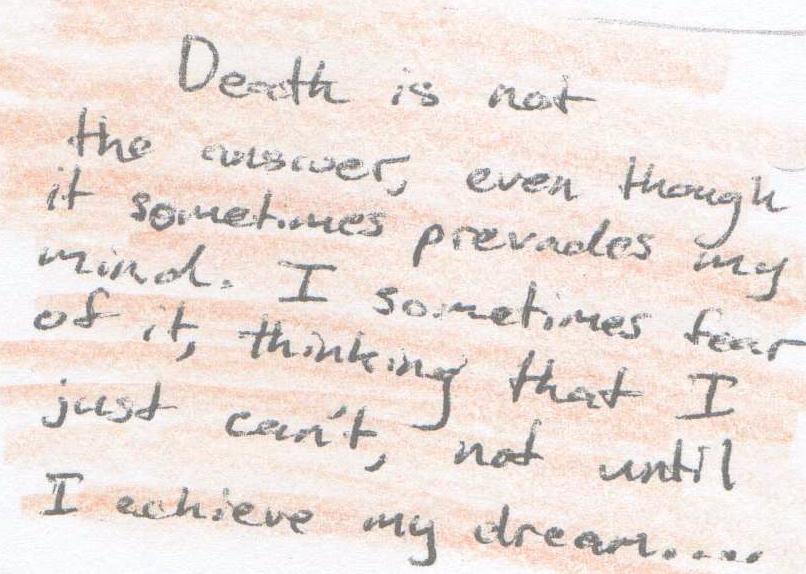 Death is not
the answer, even though
it sometimes prevades my
mind. I sometimes fear
of it, thinking that I
just can't, not until
I achieve my dream.....